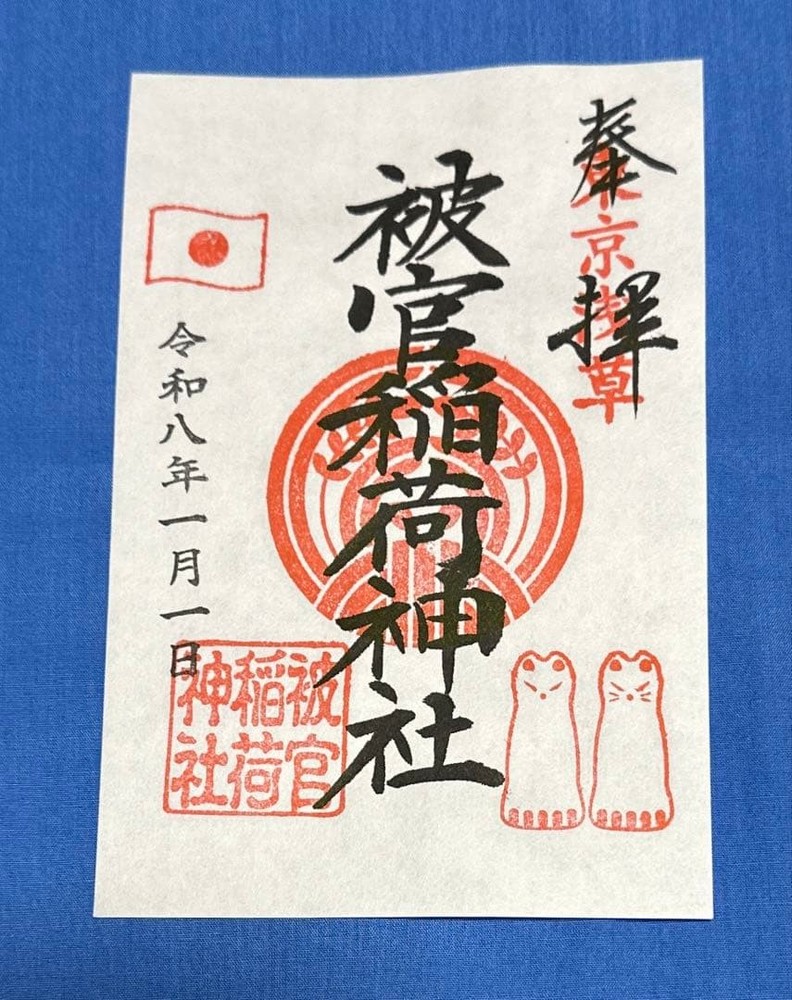 奉拝
東京浅草
被官稲荷神社
令和八年一月一日
被官
稲荷
神社